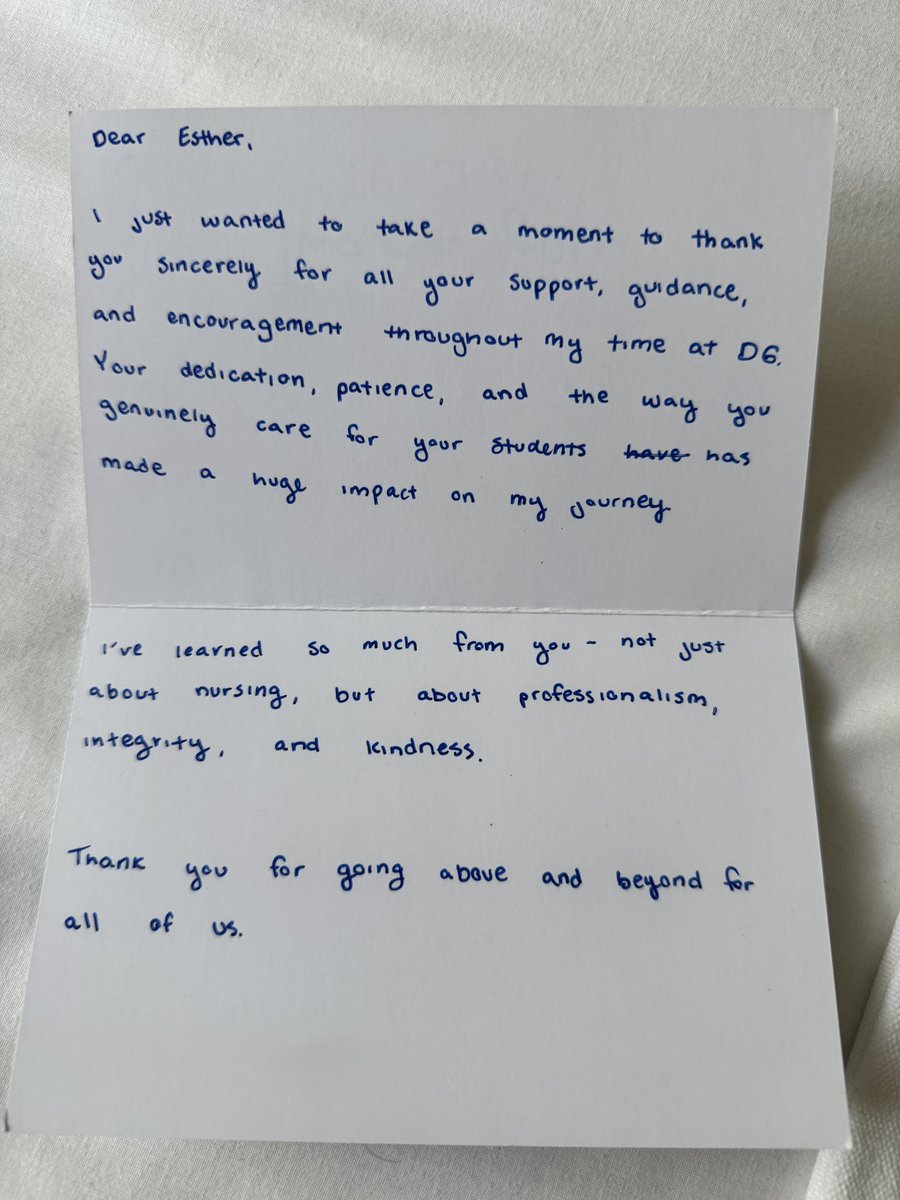 Dear Esther,
I just wanted to take a moment to thank
you sincerely for all your support, guidance,
and encouragement throughout my time at D6.
Your dedication, patience, and the way you
genuinely care for your students ~~have~~ has
made a huge impact on my journey.
I've learned so much from you - not just
about nursing, but about professionalism,
integrity, and kindness.
Thank you for going above and beyond for
all of us.